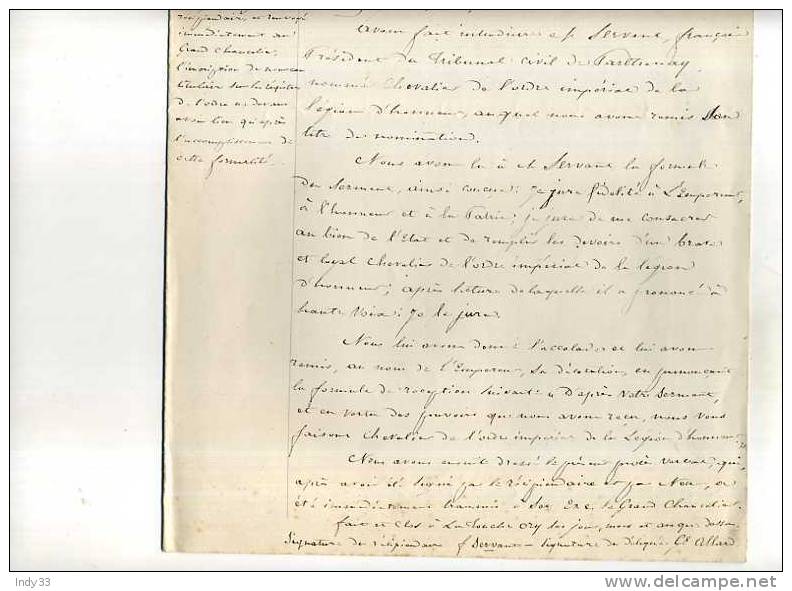 récipiendaire, et renvoyé
immédiatement au
Grand Chancelier,
l'inscription du nouveau
titulaire sur les registres
de l'ordre ne devant
avoir lieu qu'après
l'accomplissement de
cette formalité.
avons fait introduire Servant, français
Président du Tribunal civil de Parthenay
nommé Chevalier de l'ordre impérial de la
légion d'honneur, auquel nous avons remis son
titre de nomination.
Nous avons lu à Servant la formule
du Serment, ainsi conçue : Je jure fidélité à L'Empereur,
à l'honneur et à la Patrie ; je jure de me consacrer
au bien de l'Etat et de remplir les devoirs d'un brave
et loyal Chevalier de l'ordre impérial de la légion
d'honneur ; après lecture de laquelle il a prononcé à
haute voix : Je le jure
Nous lui avons donné l'accolade et lui avons
remis, au nom de l'Empereur, Sa décoration, en prononçant
la formule de réception suivante : D'après votre Serment,
et en vertu des pouvoirs que nous avons reçu, nous vous
faisons Chevalier de l'ordre impérial de la Légion d'honneur
Nous avons ensuite dressé le présent procès verbal, qui,
après avoir été signé par le récipiendaire et par Nous, a
été immédiatement transmis à Son Exc. le Grand Chancelier.
fait et clos à les jour, mois et an que dessus
Signature du récipiendaire Servant - Signature du délégué Allard
Indy33
delcampe.net